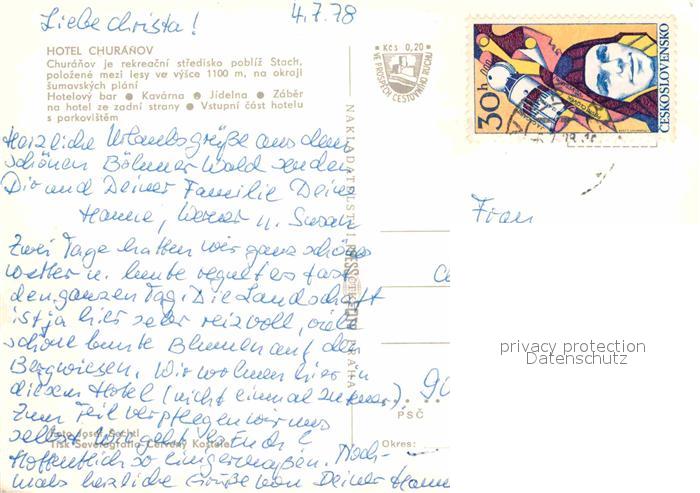 Liebe Christa!
4.7.78
HOTEL CHURÁŇOV
Churáňov je rekreační středisko poblíž Stach,
položené mezi lesy ve výšce 1100 m, na okraji
šumavských plání
Hotelový bar ● Kavárna ● Jídelna ● Záběr
na hotel ze zadní strany ● Vstupní část hotelu
s parkovištěm
Herzliche Urlaubsgrüße aus dem
schönen Böhmer Wald senden
Dir und Deiner Familie Deine
Hanne, Werner u. Susan
Zwei Tage hatten wir ganz schönes
Wetter u. heute regnet es fast
den ganzen Tag. Die Landschaft
ist ja hier sehr reizvoll, viele
schöne bunte Blumen auf den
Bergwiesen. Wir wohnen hier in
diesem Hotel (nicht einmal teuer),
Zum Teil verpflegen wir uns
selbst. Wie geht es Euch?
Hoffentlich so einigermaßen. Noch-
mals herzliche Grüße von Deiner Hanne
Foto Josef Sechtl
Tisk Severografia Červený Kostelec
Kčs 0,20
VE PROSPĚCH CESTOVNÍHO RUCHU
NAKLADATELSTVÍ PRESSFOTO PRAHA
30h
ČESKOSLOVENSKO
Frau
90
PSČ
Okres:
privacy protection
Datenschutz